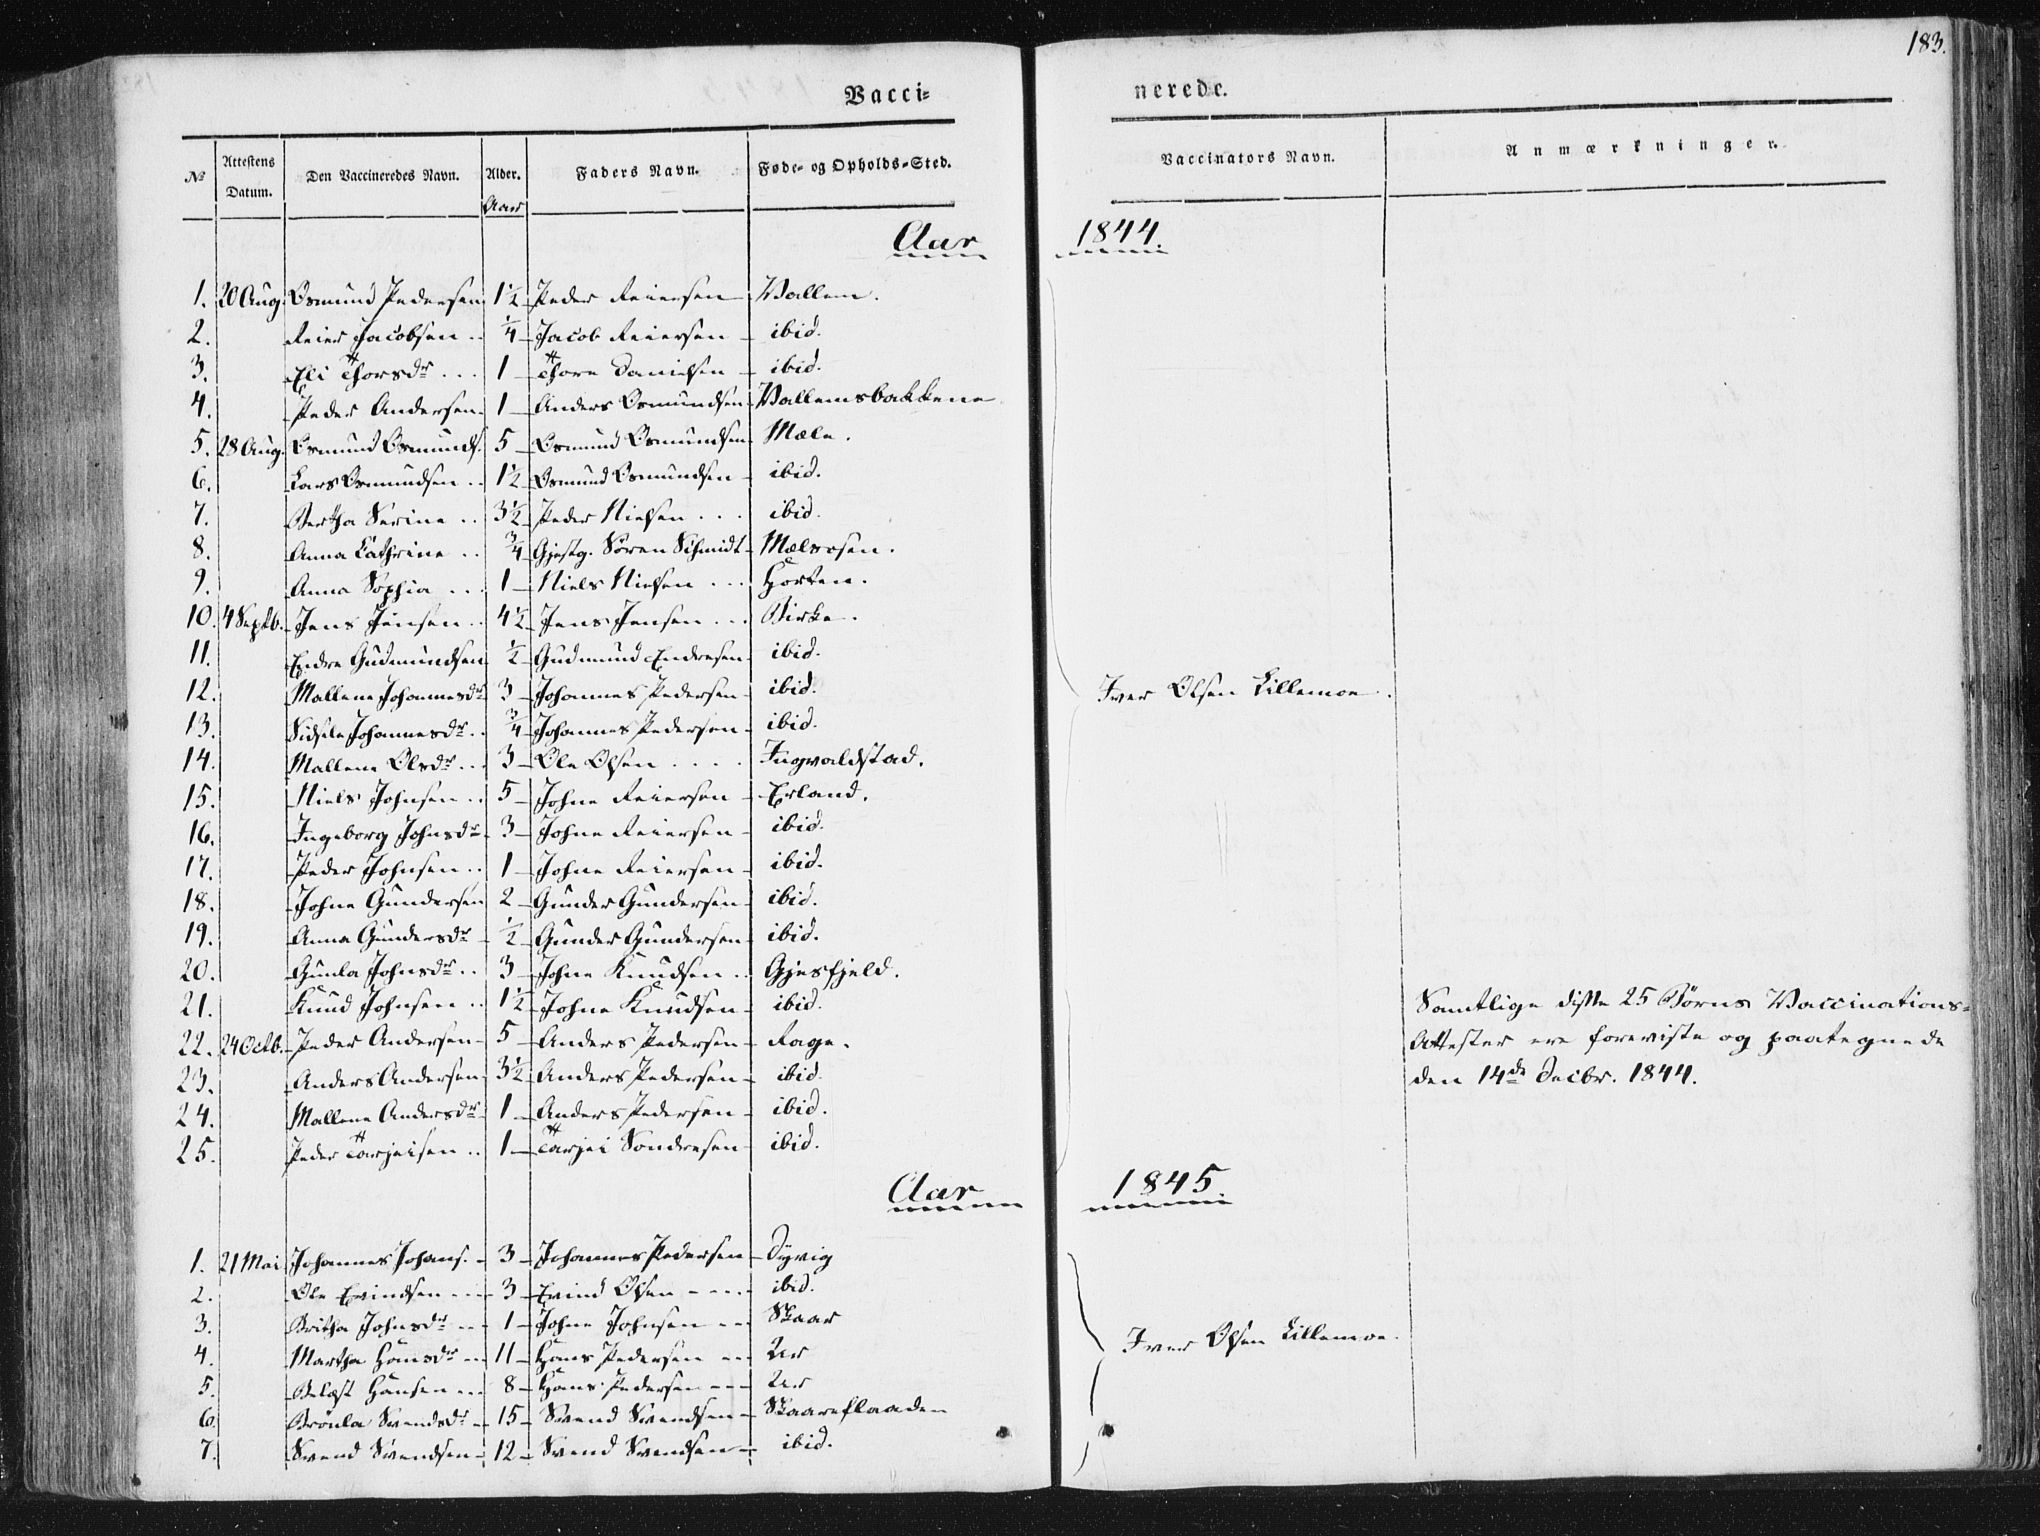 183.
Vacci=
nerede.
№ Attestens Datum. Den Vaccineredes Navn. Alder. Faders Navn. Føde- og Opholds-Sted. Vaccinators Navn. Anmærkninger.
Aar
Aar 1844.
1. 20 Aug. Osmund Pedersen 1½ Peder Reiersen Vallem.
2. Reier Jacobsen .. ¼ Jacob Reiersen ibid.
3. Eli Thorsdr ... 1 Thore Danielsen ibid.
4. Peder Andersen 1 Anders Osmundsen Vallemsbakkene
5. 28 Aug. Osmund Osmunds. 5 Osmund Osmundsen Mæle.
6. Lars Osmundsen .. 1½ Osmund Osmundsen ibid.
7. Bertha Serine .. 3½ Peder Nielsen ... ibid.
8. Anna Cathrine .. ¾ Gjestg. Sören Schmidt Mælsosen.
9. Anna Sophia ... 1 Niels Nielsen ... Horten.
10. 4 Septb. Jens Jensen .. 4½ Jens Jensen ... Birke.
11. Endre Gudmundsen ½ Gudmund Endresen ibid.
12. Mallene Johannesdr 3 Johannes Pedersen ibid. Iver Olsen Lillemoe.
13. Sidsele Johannesdr .. ¾ Johannes Pedersen ibid.
14. Mallene Olsdr ... 3 Ole Olsen .... Ingvaldstad.
15. Niels Johnsen .. 5 Johne Reiersen Erland.
16. Ingeborg Johnsdr 3 Johne Reiersen ibid.
17. Peder Johnsen .. 1 Johne Reiersen ibid.
18. Johne Gundersen 2 Gunder Gundersen ibid.
19. Anna Gundersdr ½ Gunder Gundersen ibid.
20. Gunla Johnsdr .. 3 Johne Knudsen .. Gjesfjeld.
21. Knud Johnsen .. 1½ Johne Knudsen ibid.
Samtlige disse 25 Börns Vaccinations=
22. 24 Octb. Peder Andersen 5 Anders Pedersen Rage.
Attester ere foreviste og paategnede
23. Anders Andersen 3½ Anders Pedersen ibid.
den 14de Decbr. 1844.
24. Mallene Andersdr 1 Anders Pedersen ibid.
25. Peder Tarjeisen .. 1 Tarjei Sondresen ibid.
Aar 1845.
1. 21 Mai Johannes Johans. 3 Johannes Pedersen Dyvig
2. Ole Evindsen 3 Evind Olsen ibid.
3. Britha Johnsdr 1 Johne Johnsen Skaar
Iver Olsen Lillemoe.
4. Martha Hansdr 11 Hans Pedersen Ur
5. Hansen 8 Hans Pedersen Ur
6. Brönla Svendsdr 15 Svend Svendsen Skaareflaaden
7. Svend Svendsen 12 Svend Svendsen ibid.